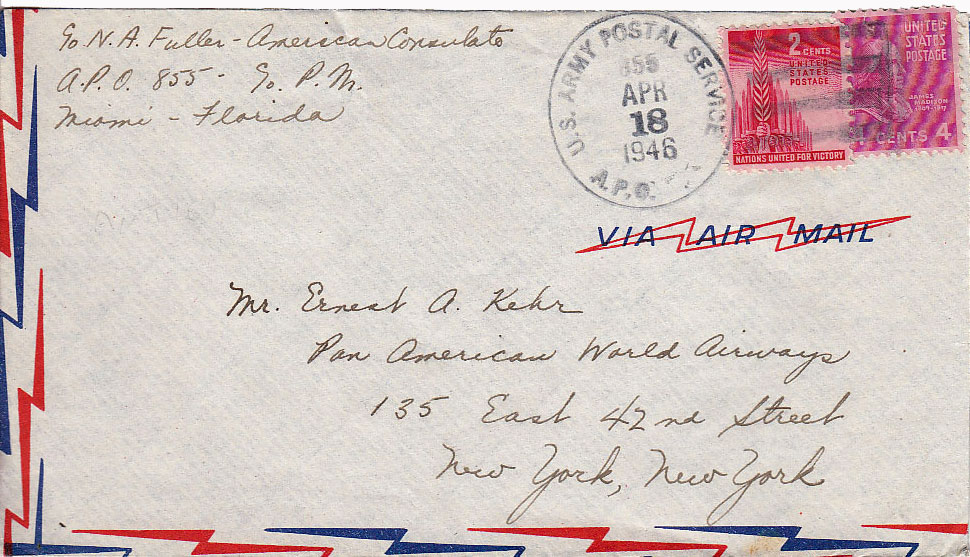 ℅ N. A. Fuller - American Consulate
A.P.O. 855 - ℅ P. M.
Miami - Florida
U.S. ARMY POSTAL SERVICE
855
APR
18
1946
A.P.O.
2 CENTS
UNITED
STATES
POSTAGE
NATIONS UNITED FOR VICTORY
UNITED
STATES
POSTAGE
JAMES
MADISON
1809-1817
CENTS 4
VIA AIR MAIL
Mr. Ernest A. Kehr
Pan American World Airways
135 East 42nd Street
New York, New York